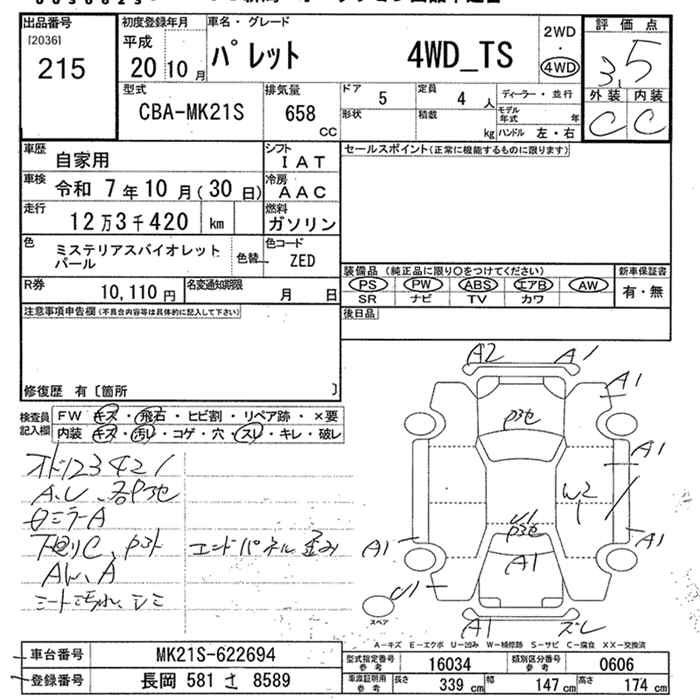 出品番号
[2036]
215
初度登録年月
平成
20 10 月
車名・グレード
パレット 4WD_TS
2WD
・
4WD
評価点
3.5
外装 内装
C C
型式
CBA-MK21S
排気量
658
CC
ドア 5
定員 4 人
ディーラー・並行
形状
積載 kg
モデル年式 年
ハンドル 左・右
車歴 自家用
シフト IAT
車検 令和 7 年 10 月(30 日)
冷房 AAC
走行 12 万 3 千 420 km
燃料 ガソリン
色 ミステリアスバイオレットパール
色替
色コード ZED
R券 10,110 円
名変通知期限 月 日
セールスポイント(正常に機能するものに限ります)
装備品 (純正品に限り○をつけてください)
新車保証書
PS PW ABS エアB AW
SR ナビ TV カワ
有・無
後日品
注意事項申告欄(不具合内容等は具体的に記入して下さい)
修復歴 有〔箇所 〕
検査員記入欄
FW キズ・飛石・ヒビ割・リペア跡・×要
内装 キズ・汚レ・コゲ・穴・スレ・キレ・破レ
オド123421
A、U
ミラーA
下廻りC
エンドパネル歪み
AW、A
シート汚れ、シミ
A2 A1
A1
A1
W2
U1
A1
A1
A1
U1
A1 ズレ
スペア
A-キズ E-エクボ U-凹み W-補修跡 S-サビ C-腐食 XX-交換済
車台番号 MK21S-622694
登録番号 長岡 581 さ 8589
型式指定番号 参考 16034
類別区分番号 参考 0606
車庫証明用 参考
長さ 339 cm
幅 147 cm
高さ 174 cm